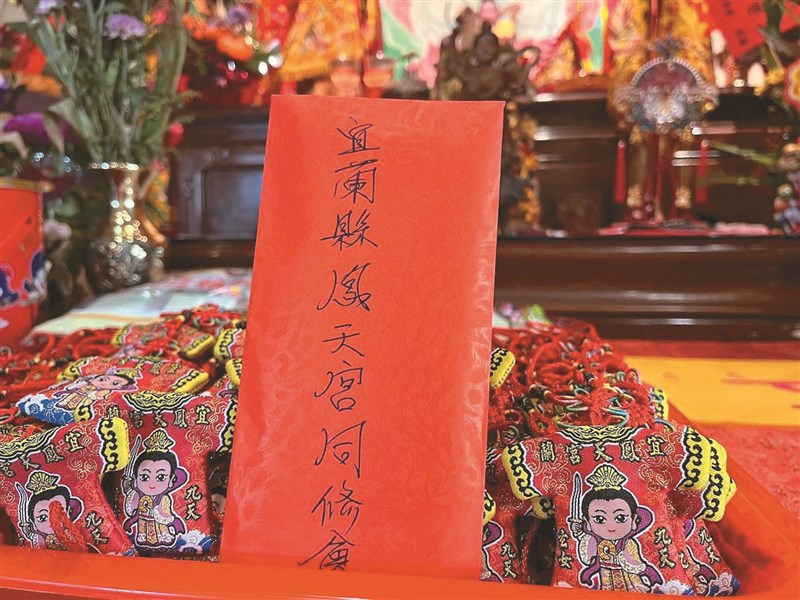 宜蘭縣鳳天宮同修會
宜鳳天宮蘭
九天
宜鳳天宮蘭
九天
玄女
九天